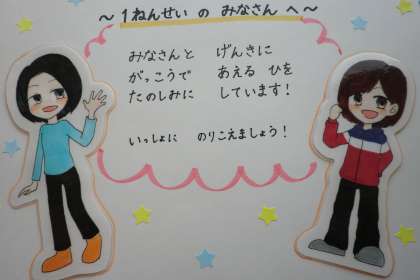 ～１ねんせい の みなさん へ～
みなさんと げんきに
がっこうで あえる ひを
たのしみに しています！
いっしょに のりこえましょう！